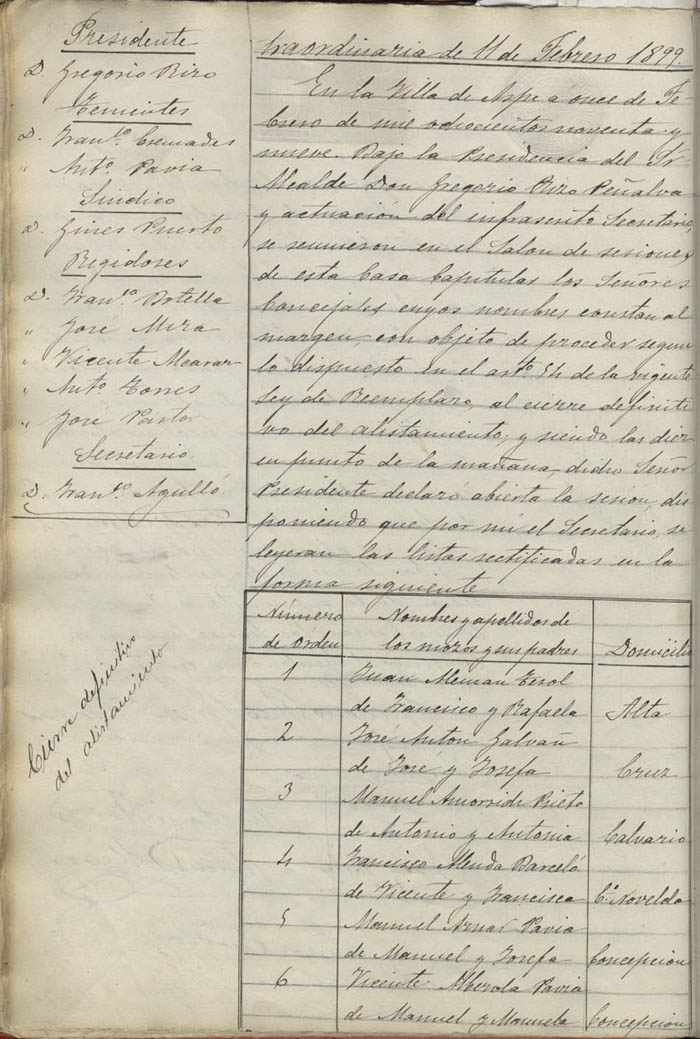 Presidente
D. Gregorio Rizo
Tenientes
D. Franco. Cremades
" Anto. Pavia
Sindico
D. Gines Puerto
Regidores
D. Franco. Botella
" José Mira
" Vicente Alcaraz
" Anto. Torres
" José Pastor
Secretario
D. Franco. Agulló.
Cierre definitivo
del alistamiento
traordinaria de 11 de Febrero 1899.
En la Villa de Aspe a once de Fe
brero de mil ochocientos noventa y
nueve. Bajo la Presidencia del Sr
Alcalde Don Gregorio Rizo Peñalva
y actuación del infrascrito Secretario,
se reunieron en el Salon de sesiones
de esta Casa Capitular los Señores
Concejales cuyos nombres constan al
margen, con objeto de proceder segun
lo dispuesto en el arto. 54 de la vigente
Ley de Reemplazo, al cierre definiti
vo del alistamiento; y siendo las diez
en punto de la mañana, dicho Señor
Presidente declaró abierta la sesion, dis
poniendo que por mi el Secretario, se
leyeran las listas rectificadas en la
forma siguiente
Número Nombres y apellidos de
de Orden los mozos y sus padres Domicilio
1 Juan Aleman Terol
de Francisco y Rafaela Alta
2 José Anton Galvañ
de José y Josefa Cruz
3 Manuel Amorside Prieto
de Antonio y Antonia Calvario
4 Francisco Alenda Barceló
de Vicente y Francisca Co. Novelda
5 Manuel Aznar Pavia
de Manuel y Josefa Concepcion
6 Vicente Alberola Pavia
de Manuel y Manuela Concepcion